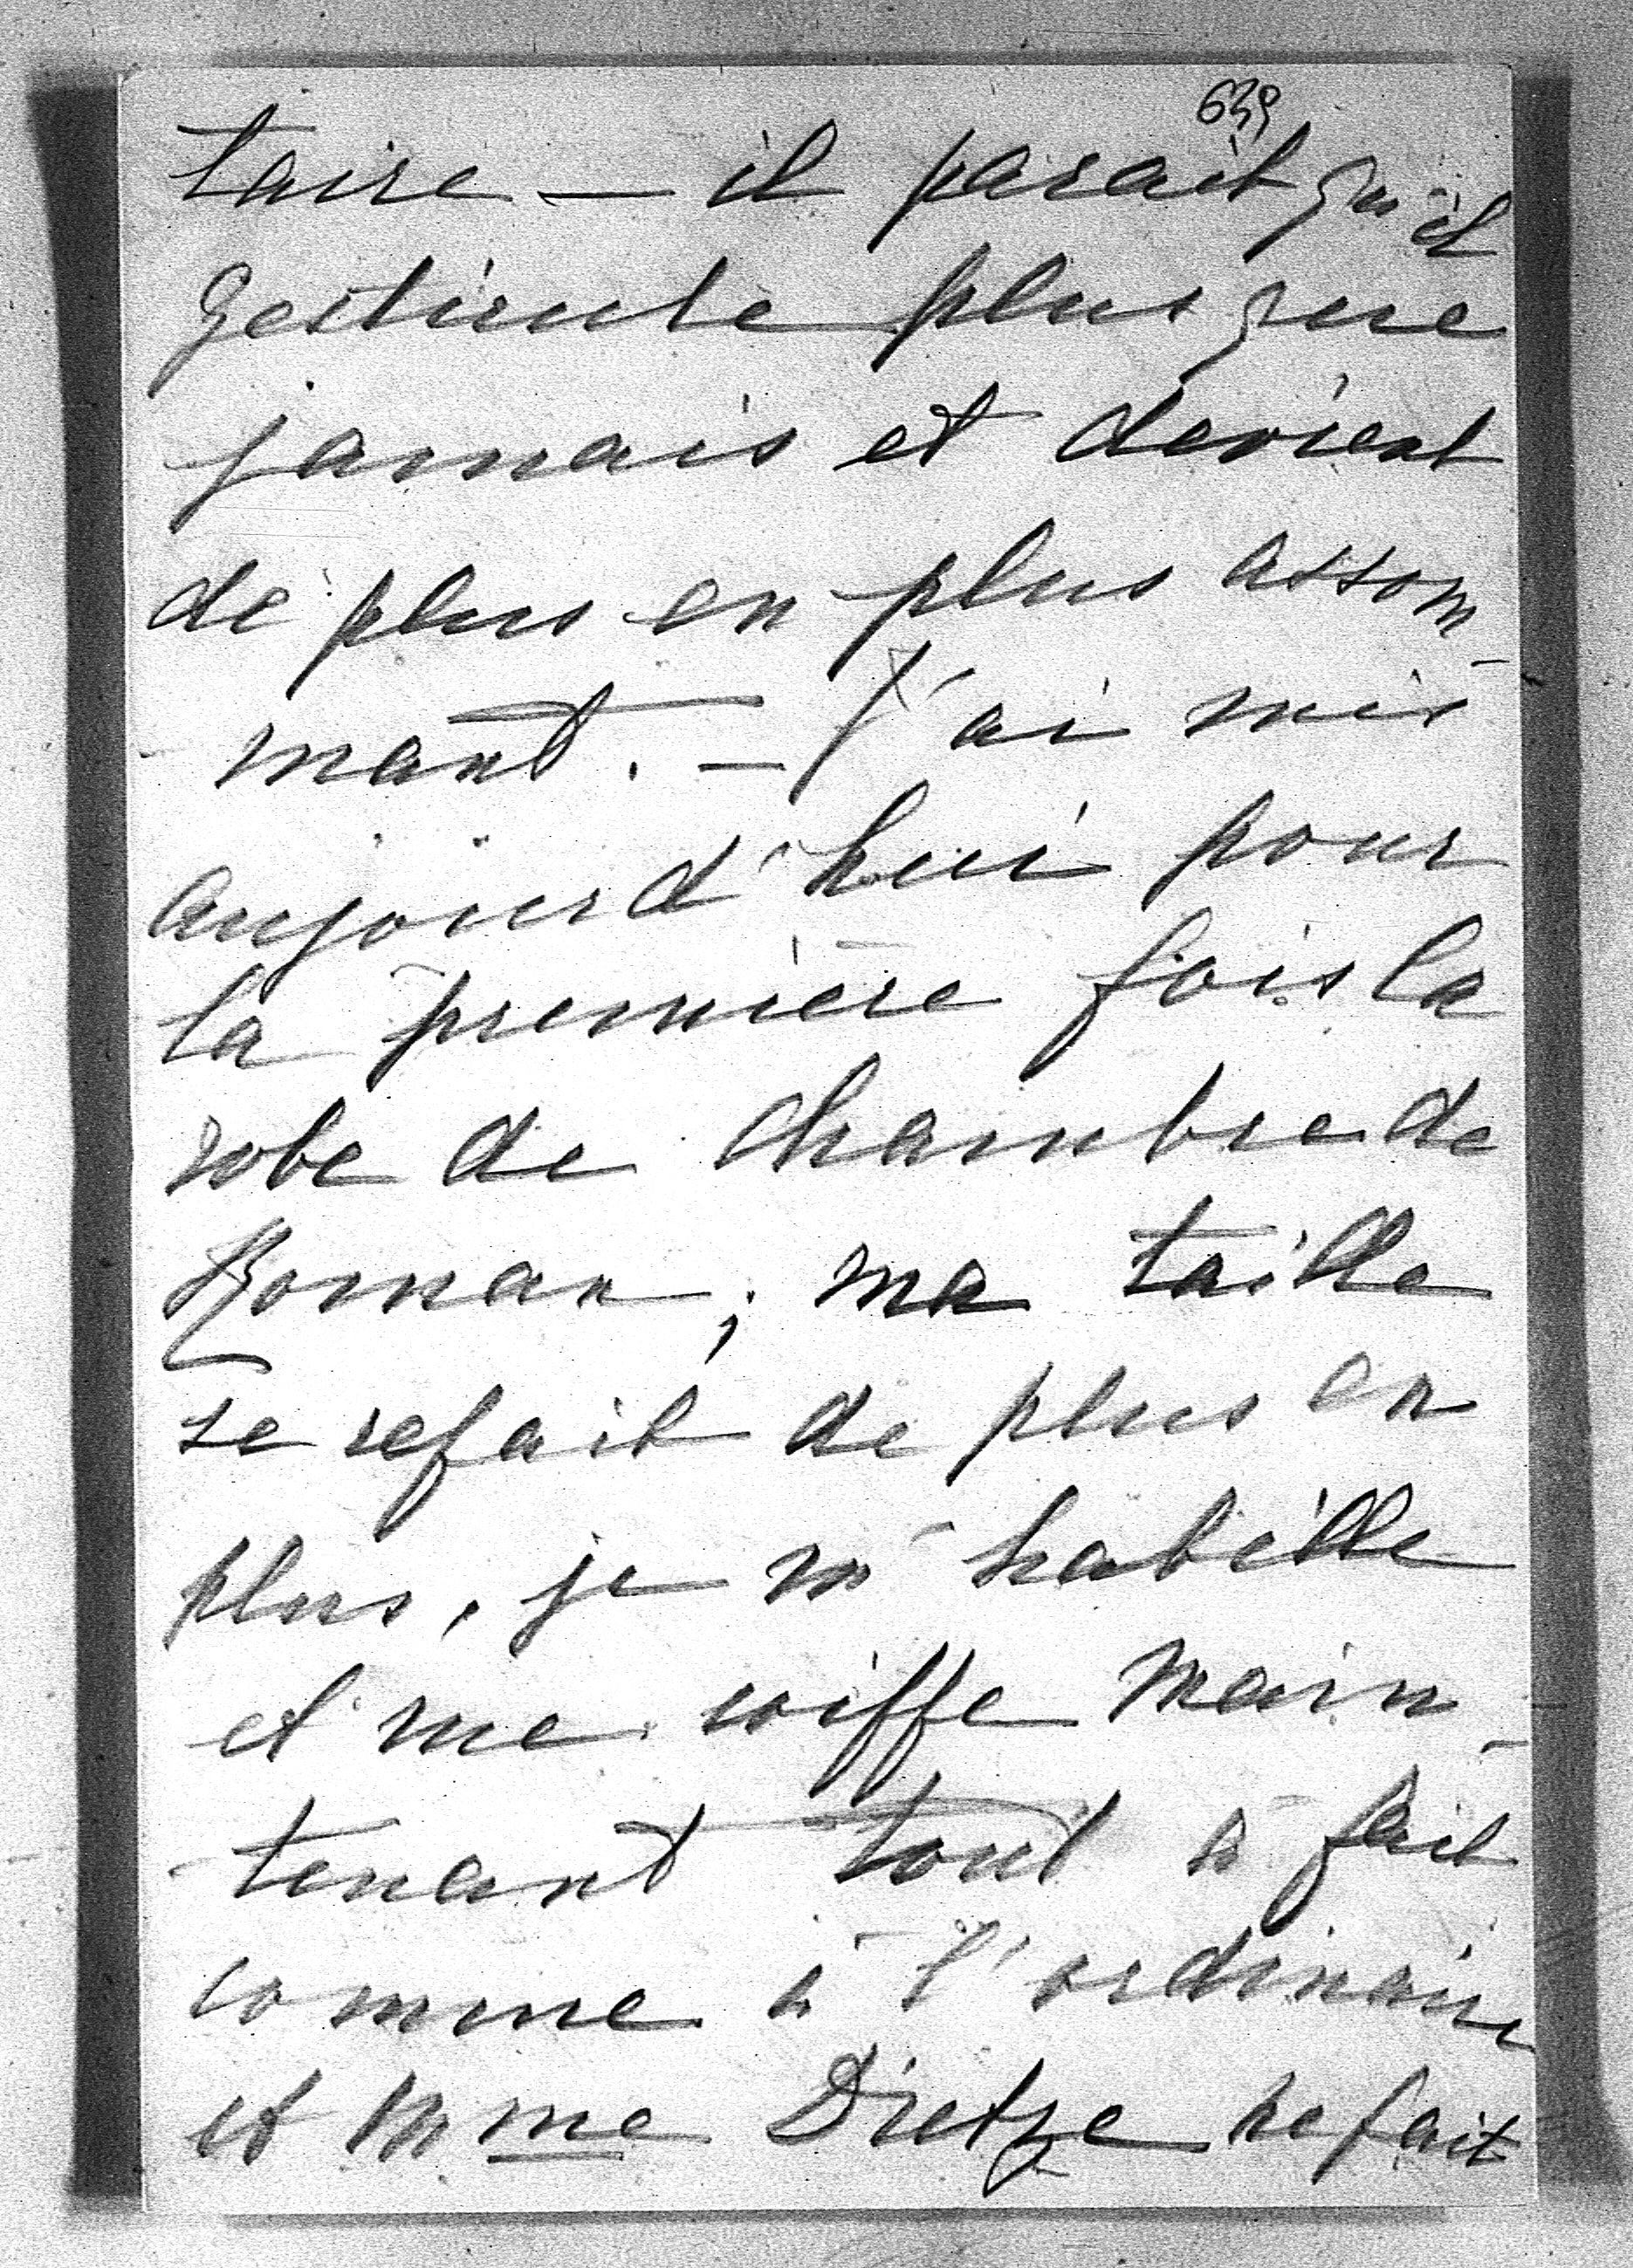 639
taire — il parait qu'il
gesticule plus que
jamais et devient
de plus en plus assom-
mant. — J'ai mis
aujourd'hui pour
la première fois la
robe de chambre de
Roman; ma taille
se refait de plus en
plus, je m'habille
et me coiffe main-
tenant tout à fait
comme à l'ordinaire
et Mme Dietze refait